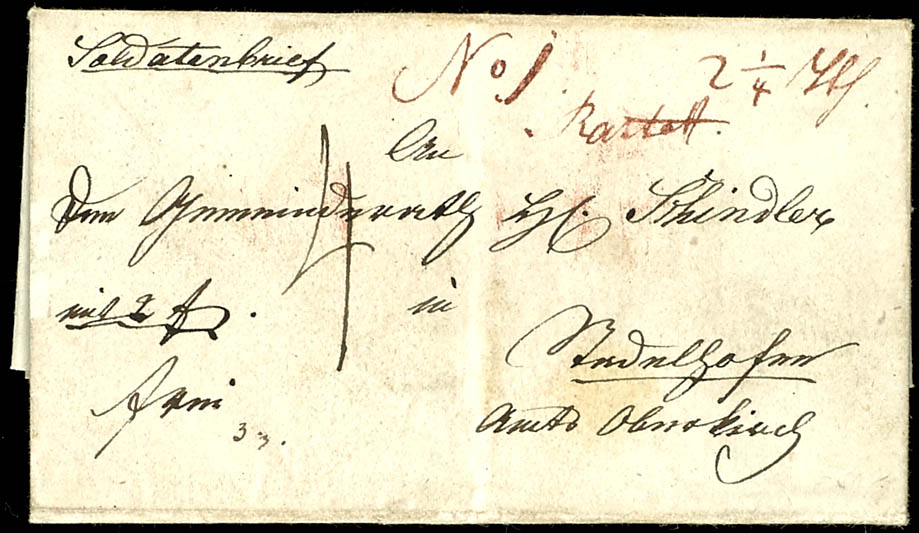 Soldatenbrief
No 1
2 1/4
Rastatt.
An
Den Gemeinderath H. Schindler
mit 2 f.
in
Stadelhofen
frei
Amts Oberkirch
33.
4